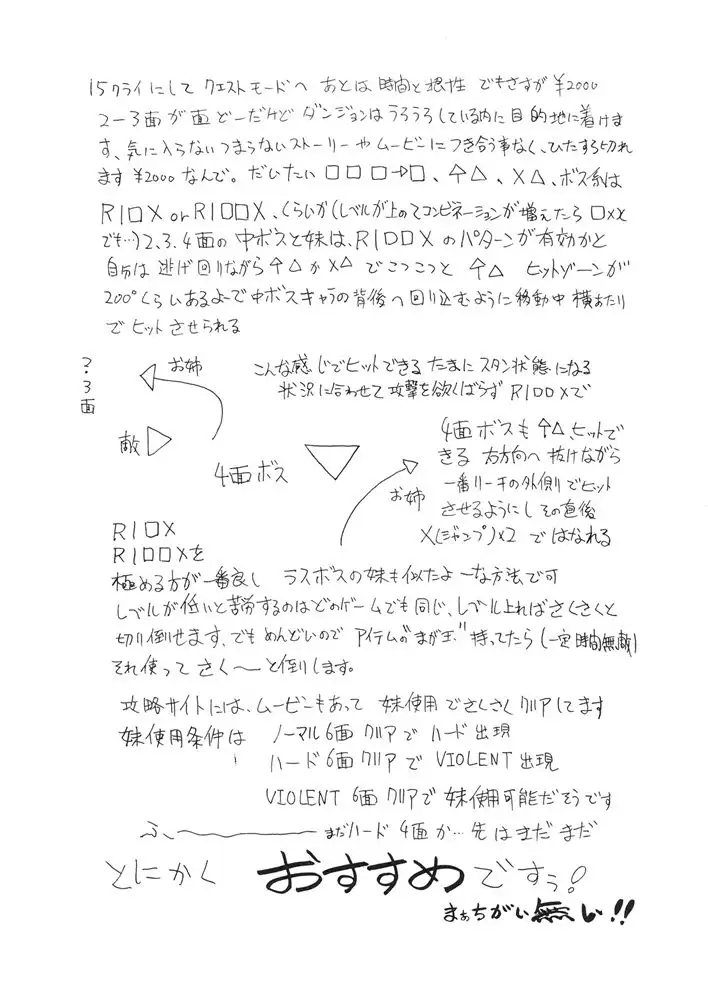 15クライにして クエストモードへ あとは 時間と根性 でもさすが ¥2000
2-3面が面どーだけど ダンジョンはうろうろしている内に目的地に着けま
す、気に入らないつまらないストーリーやムービーにつき合う事なく、ひたすら切れ
ます ¥2000 なんで。だいたい □□□→□、↑△、×△、ボス系は
R1□× or R1□□×、くらいか(レベルが上のてコンビネーションが増えたら □××
でも…) 2、3、4面の中ボスと妹は、R1□□×のパターンが有効かと
自分は 逃げ回りながら ↑△か×△でこつこつと ↑△ ヒットゾーンが
200°くらいあるよーで中ボスキャラの背後へ回り込むように移動中 横あたり
でヒットさせられる
?・3面
お姉
敵
こんな感じでヒットできる たまに スタン状態になる
状況に合わせて攻撃を欲ばらず R1□□×で
4面ボス
お姉
4面ボスも ↑△、ヒットで
きる 右方向へ 抜けながら
一番リーチの外側でヒット
させるようにし その直後
×(ジャンプ)×2 ではなれる
R1□×
R1□□×を
極める方が一番良し ラスボスの妹も似たよーな方法で可
レベルが低いと苦労するのはどのゲームでも同じ、レベル上ればさくさくと
切り倒せます、でもめんどいので アイテムの“まが玉”持ってたら(一定時間無敵)
それ使って さく〜と倒します。
攻略サイトには、ムービーもあって 妹使用でさくさくクリアしてます
妹使用条件は ノーマル6面クリアで ハード出現
ハード6面クリアで VIOLENT出現
VIOLENT 6面クリアで 妹使用可能だそうです
ふ〜 まだハード 4面か… 先はまだまだ
とにかく おすすめですぅ!
まぁちがい無し!!